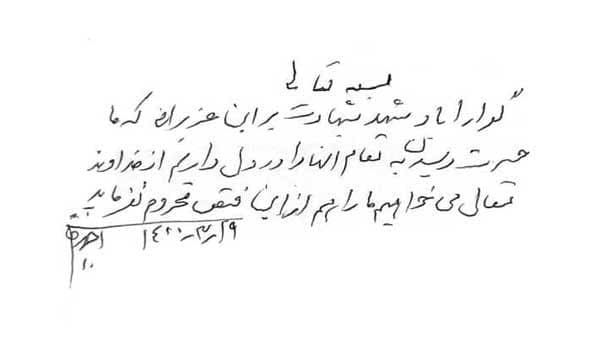 بسمه تعالی
گوارا باد شهد شهادت بر این عزیزانی که ما
حسرت رسیدن به مقام آنها را در دل داریم از خداوند
متعال می‌خواهیم ما را هم از این فیض محروم نفرماید
۱۴۰۰/۳/۲۹